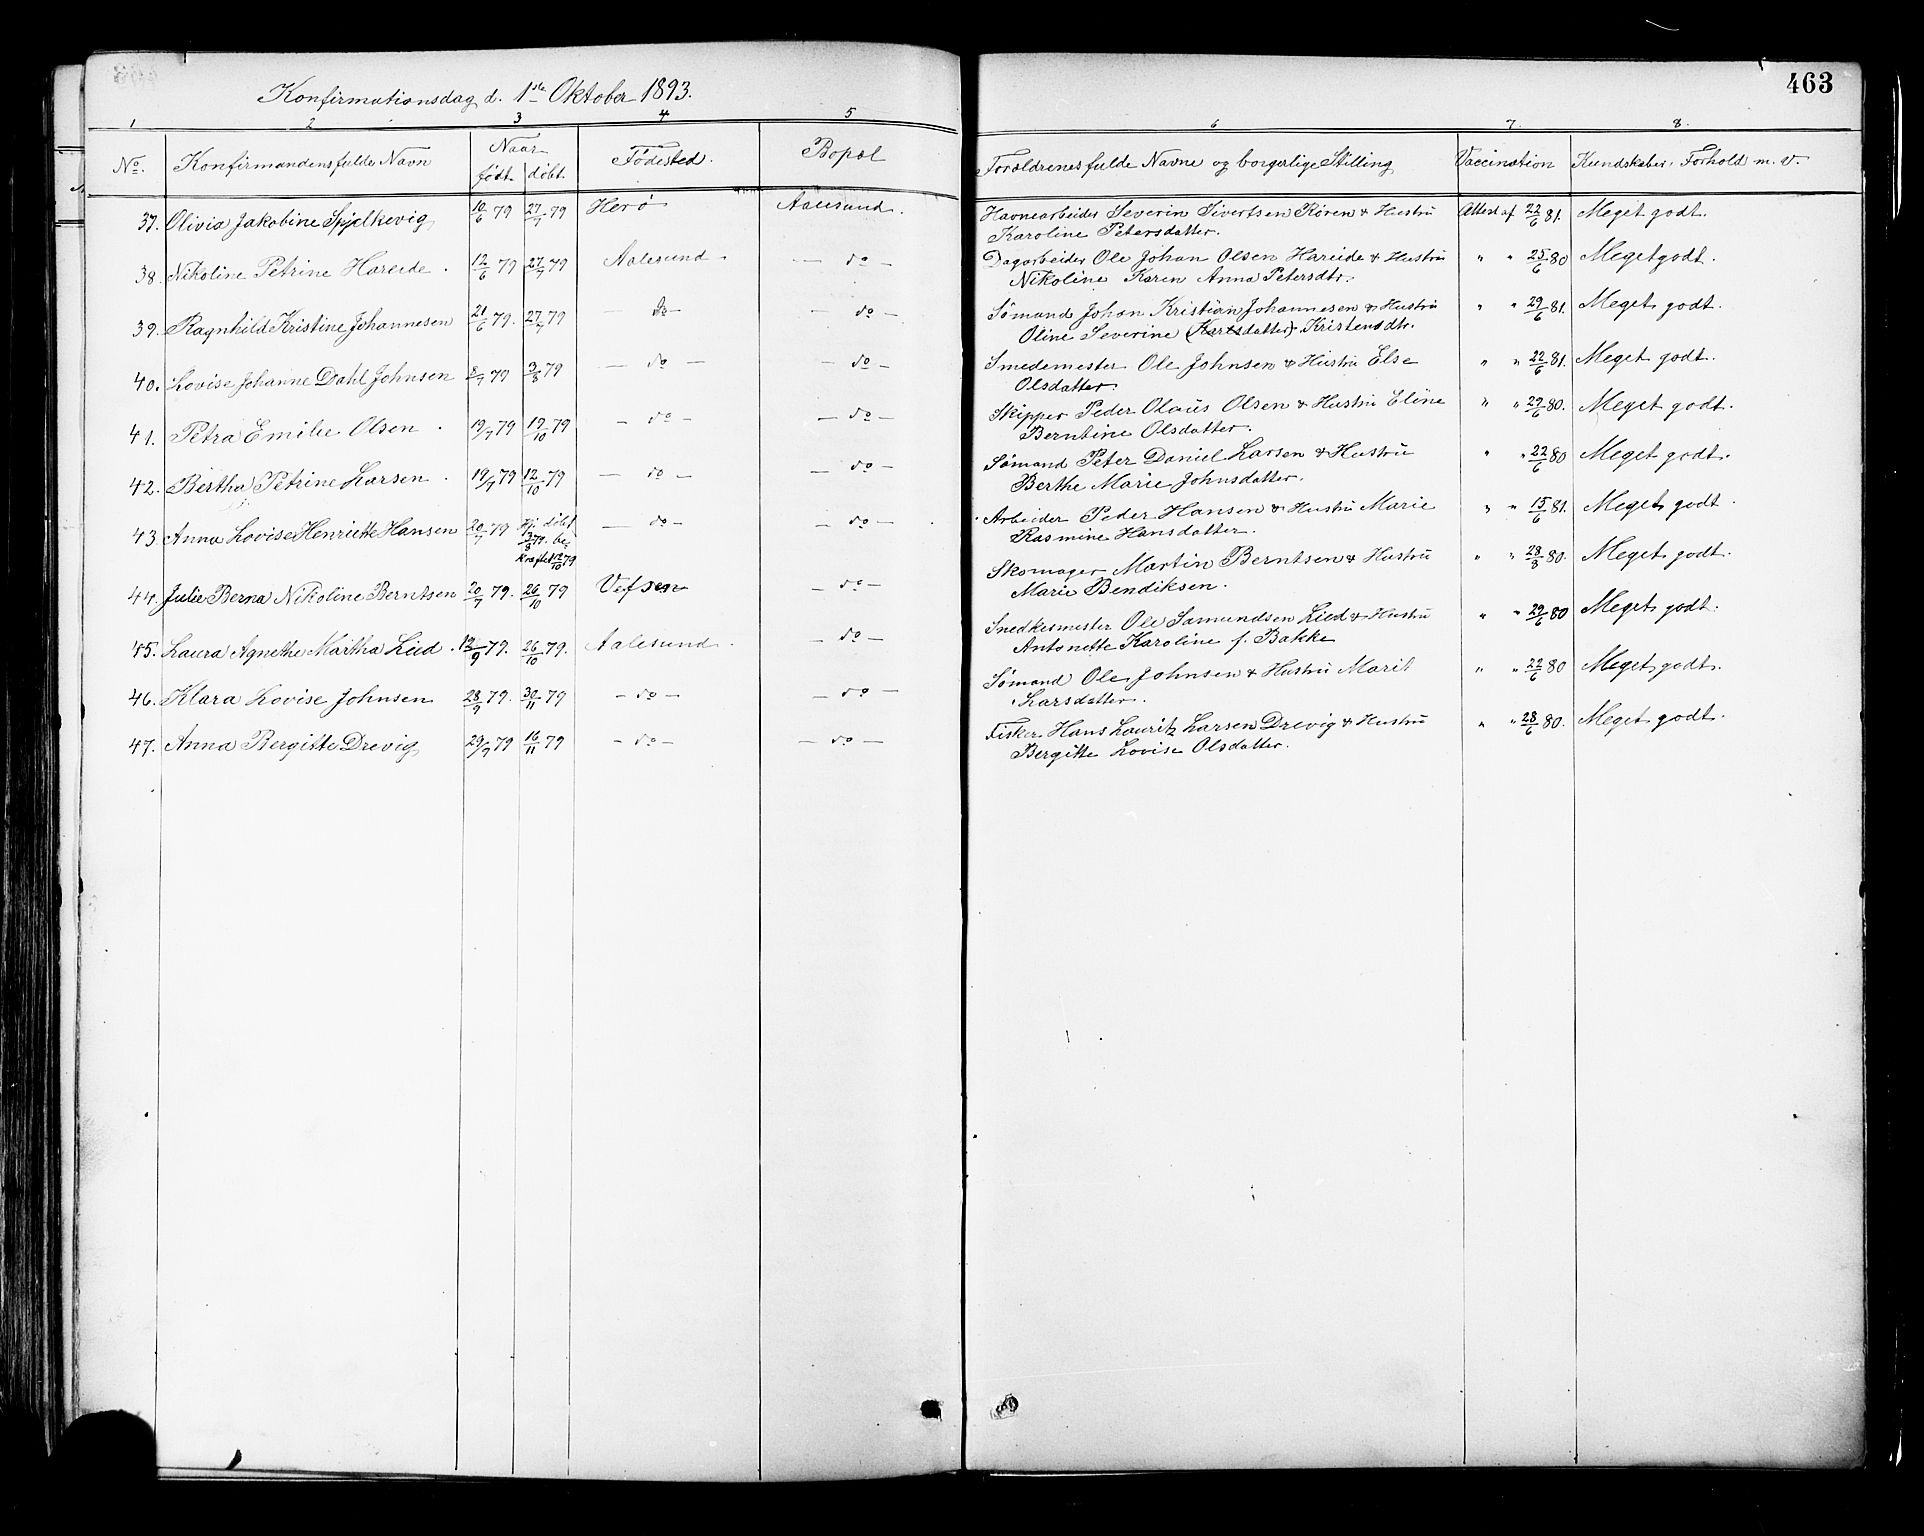 463
Konfirmationsdag d. 1ste Oktober 1893.
1 2 3 4 5 6 7. 8.
No. Konfirmandens fulde Navn Naar født. døbt. Fødested. Bopæl Forældrenes fulde Navne og borgerlige Stilling Vaccination Kundskaber, Forhold m. v.
37. Olivia Jakobine Spjelkevig 10/6 79 27/7 79 Herø Aalesund. Havnearbeider Severin Sivertsen Røren & Hustru Attest af 22/6 81. Meget godt.
Karoline Petersdatter.
38. Nikoline Petrine Hareide. 12/6 79 27/7 79 Aalesund - do - Dagarbeider Ole Johan Olsen Hareide & Hustru " " 25/6 80 Meget godt.
Nikoline Karen Anna Petersdtr.
39. Ragnhild Kristine Johannesen 21/6 79. 27/7 79 - do - - do - Sømand Johan Kristian Johannesen & Hustru " " 29/6 81. Meget godt.
Oline Severine (Karlsdatter) Kristensdtr.
40. Lovise Johanne Dahl Johnsen 5/7 79 3/8 79 - do - - do - Smedemester Ole Johnsen & Hustru Else " " 22/6 81. Meget godt.
Olsdatter.
41. Petra Emilie Olsen. 19/7 79 19/10 79 - do - - do - Skipper Peder Olaus Olsen & Hustru Eline " " 29/6 80. Meget godt.
Berntine Olsdatter.
42. Bertha Petrine Larsen. 19/7 79 12/10 79 - do - - do - Sømand Peter Daniel Larsen & Hustru " " 22/6 80 Meget godt.
Berthe Marie Johnsdatter.
43. Anna Lovise Henriette Hansen 20/7 79 Hj. døbt - do - - do - Arbeider Peder Hansen & Hustru Marie " " 15/6 81. Meget godt
3/8 79. be- Rasmine Hansdatter.
kræftet 12/10 79
44. Julie Berna Nikoline Berntsen 20/7 79. 26/10 79 Vefsen - do - Skomager Martin Berntsen & Hustru " " 28/8 80. Meget godt.
Marie Bendiksen.
45. Laura Agnethe Martha Lied. 12/9 79. 26/10 79. Aalesund. - do - Snedkermester Ole Samundsen Lied & Hustru " " 29/6 80 Meget godt.
Antonette Karoline f. Bakke
46. Klara Lovise Johnsen 28/9 79. 30/11 79 - do - - do - Sømand Ole Johnsen & Hustru Marit " " 22/6 80 Meget godt.
Larsdatter.
47. Anna Bergitte Drevig 29/9 79 16/11 79 - do - - do - Fisker Hans Lauritz Larsen Drevig & Hustru " " 28/6 80. Meget godt.
Bergitte Lovise Olsdatter.